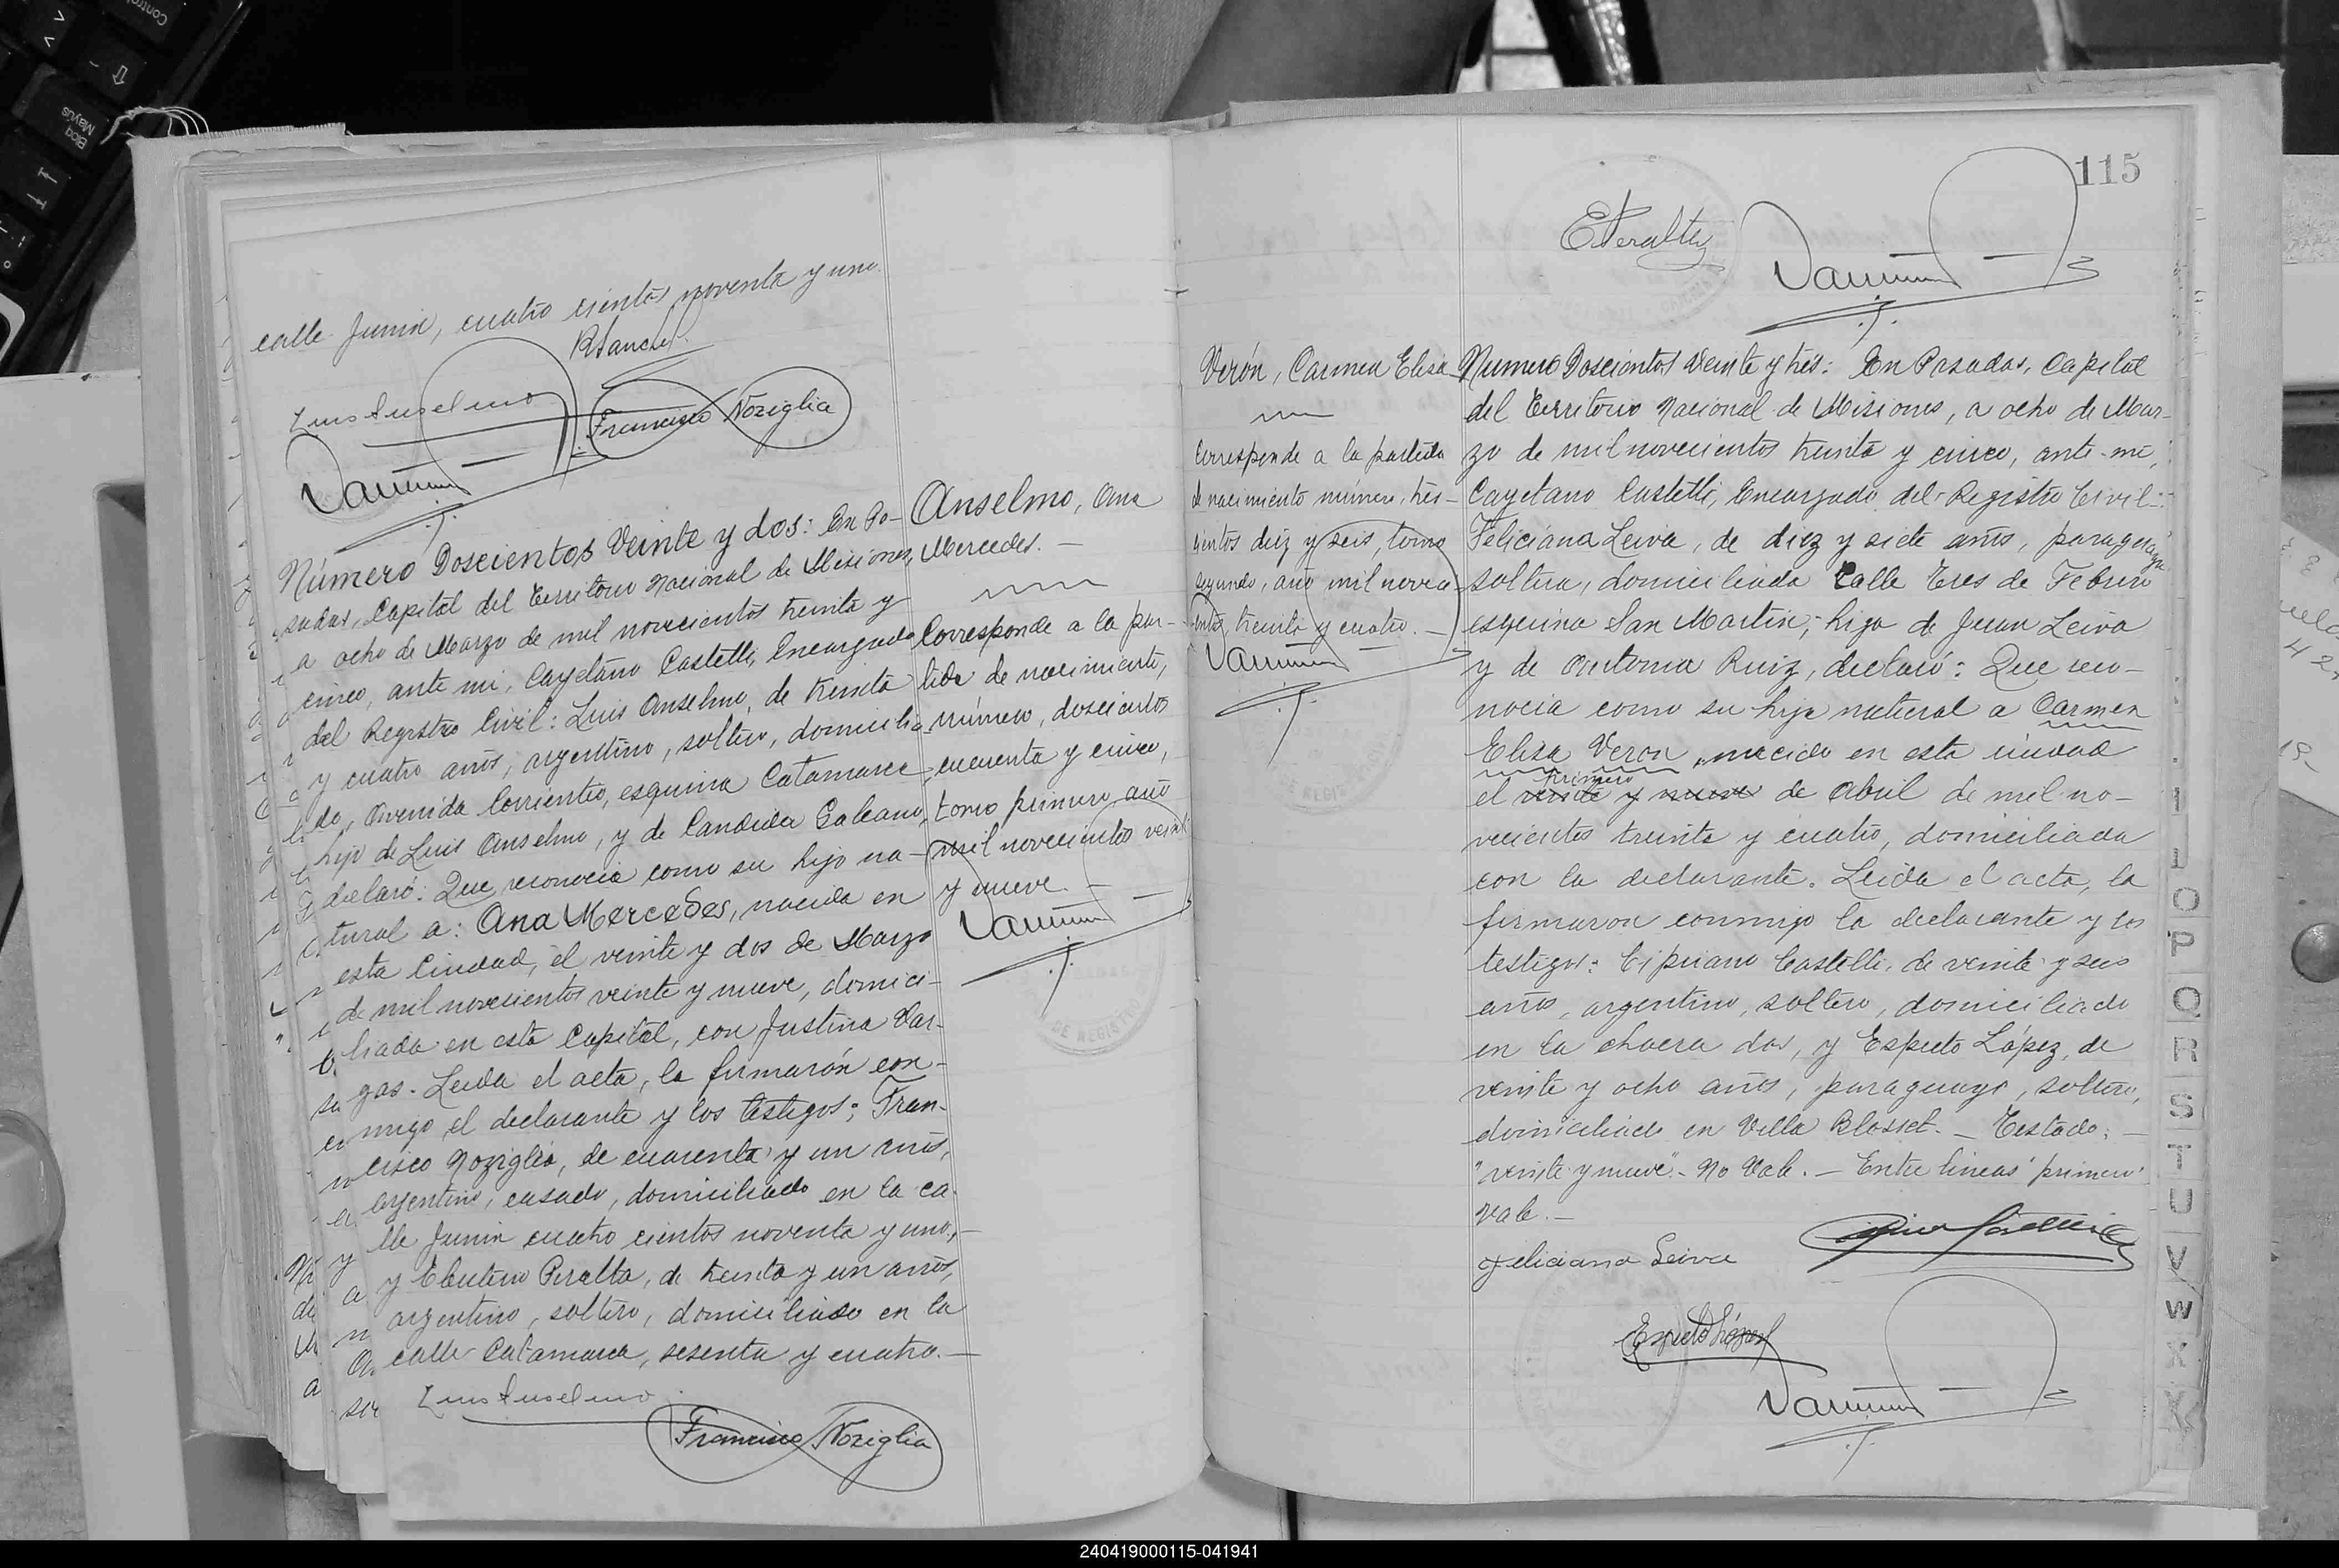 calle Junin, cuatro cientos noventa y uno.
Luis Anselmo
Francisco Noziglia
Número Doscientos Veinte y dos: En Po-
sadas, Capital del Territorio Nacional de Misiones,
a ocho de Marzo de mil novecientos treinta y
cinco, ante mi, Cayetano Castelli, Encargado
del Registro Civil: Luis Anselmo, de treinta
y cuatro años, argentino, soltero, domicilia-
do, Avenida Corrientes, esquina Catamarca,
hijo de Luis Anselmo, y de Candida Galeano,
declaró: Que reconocía como su hija na-
tural a: Ana Mercedes, nacida en
esta Ciudad, el veinte y dos de Marzo
de mil novecientos veinte y nueve, domici-
liada en esta Capital, con Justina Var-
gas. Leida el acta, la firmarón con-
migo el declarante y los testigos; Fran-
cisco Noziglia, de cuarenta y un años,
argentino, casado, domiciliado en la ca-
lle Junin cuatro cientos noventa y uno,
y Eleuterio Peralta, de treinta y un años,
argentino, soltero, domiciliado en la
calle Catamarca, sesenta y cuatro.—
Luis Anselmo
Francisco Noziglia
Anselmo, Ana
Mercedes.—
Corresponde a la par-
tida de nacimiento,
número, doscientos
cincuenta y cinco,
tomo primero año
mil novecientos veinte
y nueve.—
DE REGISTRO
115
EPeralta
Verón, Carmen Elisa
Corresponde a la partida
de nacimiento número, tres-
cientos diez y seis, tomo
segundo, año mil nove-
cientos treinta y cuatro.—
Numero Doscientos Veinte y tres: En Posadas, Capital
del Territorio Nacional de Misiones, a ocho de Mar-
zo de mil novecientos treinta y cinco, ante mi,
Cayetano Castelli, Encargado del Registro Civil:
Feliciana Leiva, de diez y siete años, paraguaya
soltera, domiciliada Calle Tres de Febrero
esquina San Martin, hija de Juan Leiva
y de Antonia Ruiz, declaró: Que reco-
nocia como su hija natural a Carmen
Elisa Veron, nacida en esta ciudad
primero
el veinte y nueve de Abril de mil no-
vecientos treinta y cuatro, domiciliada
con la declarante. Leida el acta, la
firmaron conmigo la declarante y los
testigos: Cipriano Castelli, de veinte y seis
años, argentino, soltero, domiciliado
en la chacra dos, y Espirito López, de
veinte y ocho años, paraguayo, soltero,
domiciliado en Villa Blosset.— Testado:—
"veinte y nueve"- No Vale.— Entre lineas "primero"
Vale.—
Feliciana Leiva
O
P
Q
R
S
T
U
V
W
X
240419000115-041941